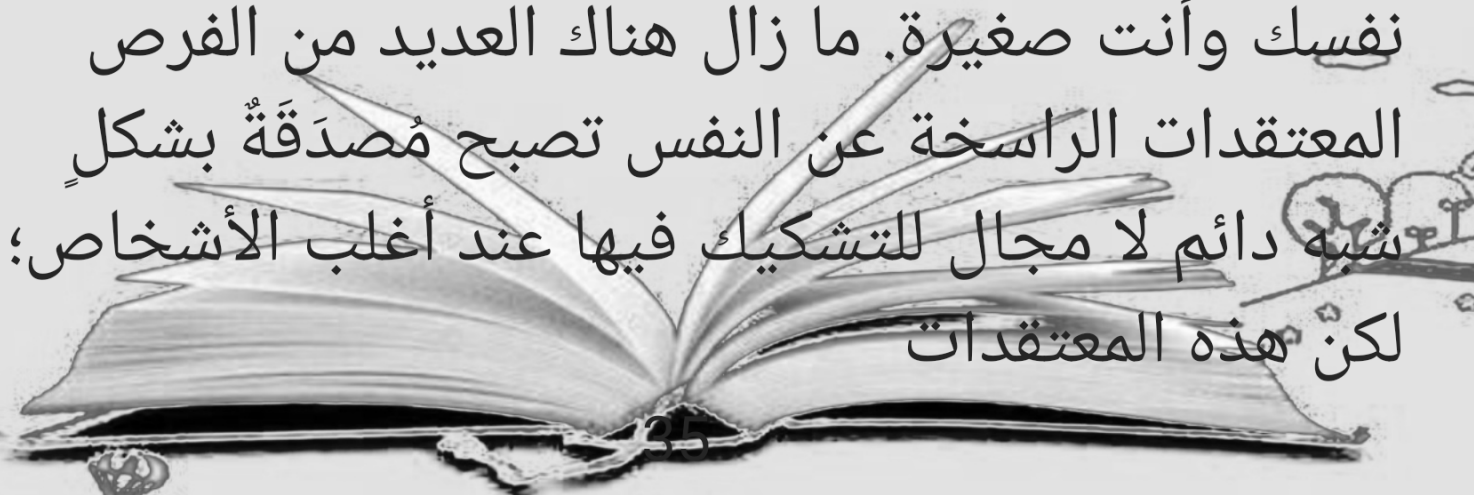 نفسك وأنت صغيرة. ما زال هناك العديد من الفرص
المعتقدات الراسخة عن النفس تصبح مُصدَقَةٌ بشكلٍ
شبه دائم لا مجال للتشكيك فيها عند أغلب الأشخاص؛
لكن هذه المعتقدات
35